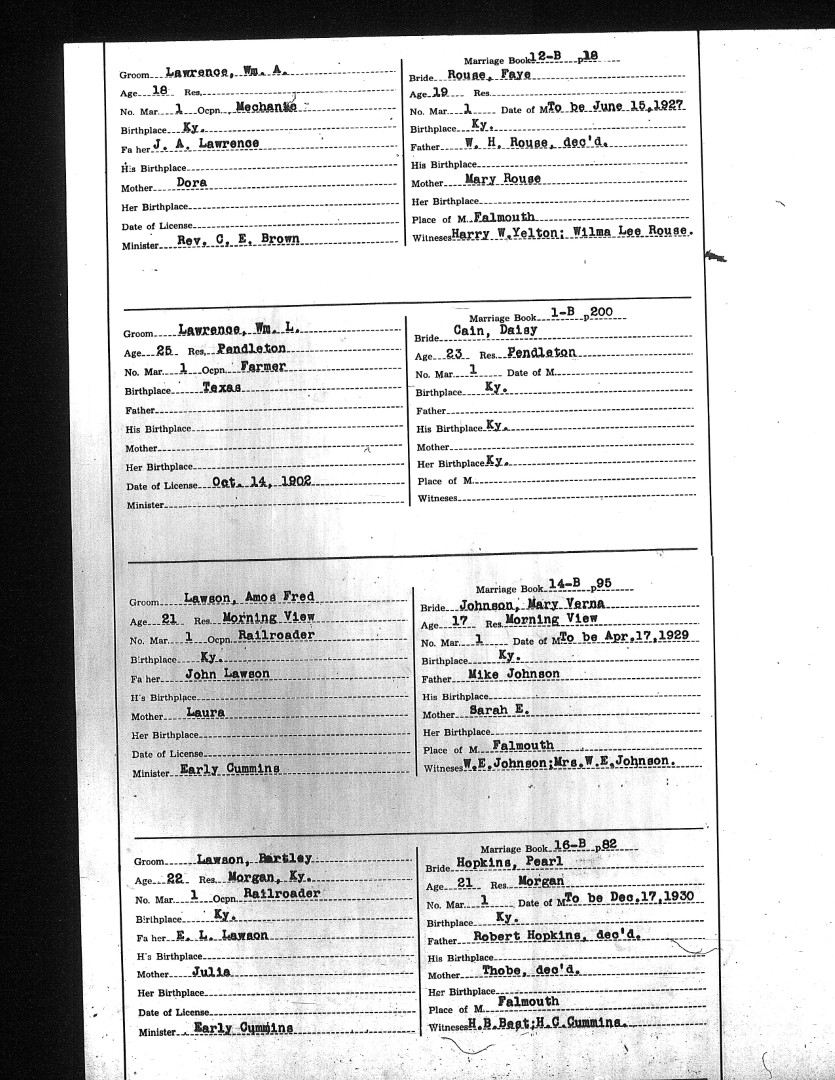 Marriage Book 12-B p18
Groom Lawrence, Wm. A.
Bride Rouse, Faye
Age 18 Res.
Age 19 Res.
No. Mar. 1 Ocpn. Mechanic
No. Mar. 1 Date of M. To be June 15, 1927
Birthplace Ky.
Birthplace Ky.
Fa her J. A. Lawrence
Father W. H. Rouse, dec'd.
His Birthplace
His Birthplace
Mother Dora
Mother Mary Rouse
Her Birthplace
Her Birthplace
Date of License
Place of M. Falmouth
Minister Rev. C. E. Brown
Witneses Harry W. Yelton; Wilma Lee Rouse.
Marriage Book 1-B p200
Groom Lawrence, Wm. L.
Bride Cain, Daisy
Age 25 Res. Pendleton
Age 23 Res. Pendleton
No. Mar. 1 Ocpn. Farmer
No. Mar. 1 Date of M.
Birthplace Texas
Birthplace Ky.
Father
Father
His Birthplace
His Birthplace Ky.
Mother
Mother
Her Birthplace
Her Birthplace Ky.
Date of License Oct. 14, 1902
Place of M.
Minister
Witneses
Marriage Book 14-B p95
Groom Lawson, Amos Fred
Bride Johnson, Mary Verna
Age 21 Res. Morning View
Age 17 Res. Morning View
No. Mar. 1 Ocpn. Railroader
No. Mar. 1 Date of M. To be Apr. 17, 1929
Birthplace Ky.
Birthplace Ky.
Fa her John Lawson
Father Mike Johnson
H's Birthplace
His Birthplace
Mother Laura
Mother Sarah E.
Her Birthplace
Her Birthplace
Date of License
Place of M. Falmouth
Minister Early Cummins
Witneses W.E.Johnson;Mrs.W.E.Johnson.
Marriage Book 16-B p82
Groom Lawson, Bartley
Bride Hopkins, Pearl
Age 22 Res. Morgan, Ky.
Age 21 Res. Morgan
No. Mar. 1 Ocpn. Railroader
No. Mar. 1 Date of M. To be Dec. 17, 1930
Birthplace Ky.
Birthplace Ky.
Fa her E. L. Lawson
Father Robert Hopkins, dec'd.
H's Birthplace
His Birthplace
Mother Julia
Mother Thobe, dec'd.
Her Birthplace
Her Birthplace
Date of License
Place of M. Falmouth
Minister Early Cummins
Witneses H.B.Best;H.C.Cummins.